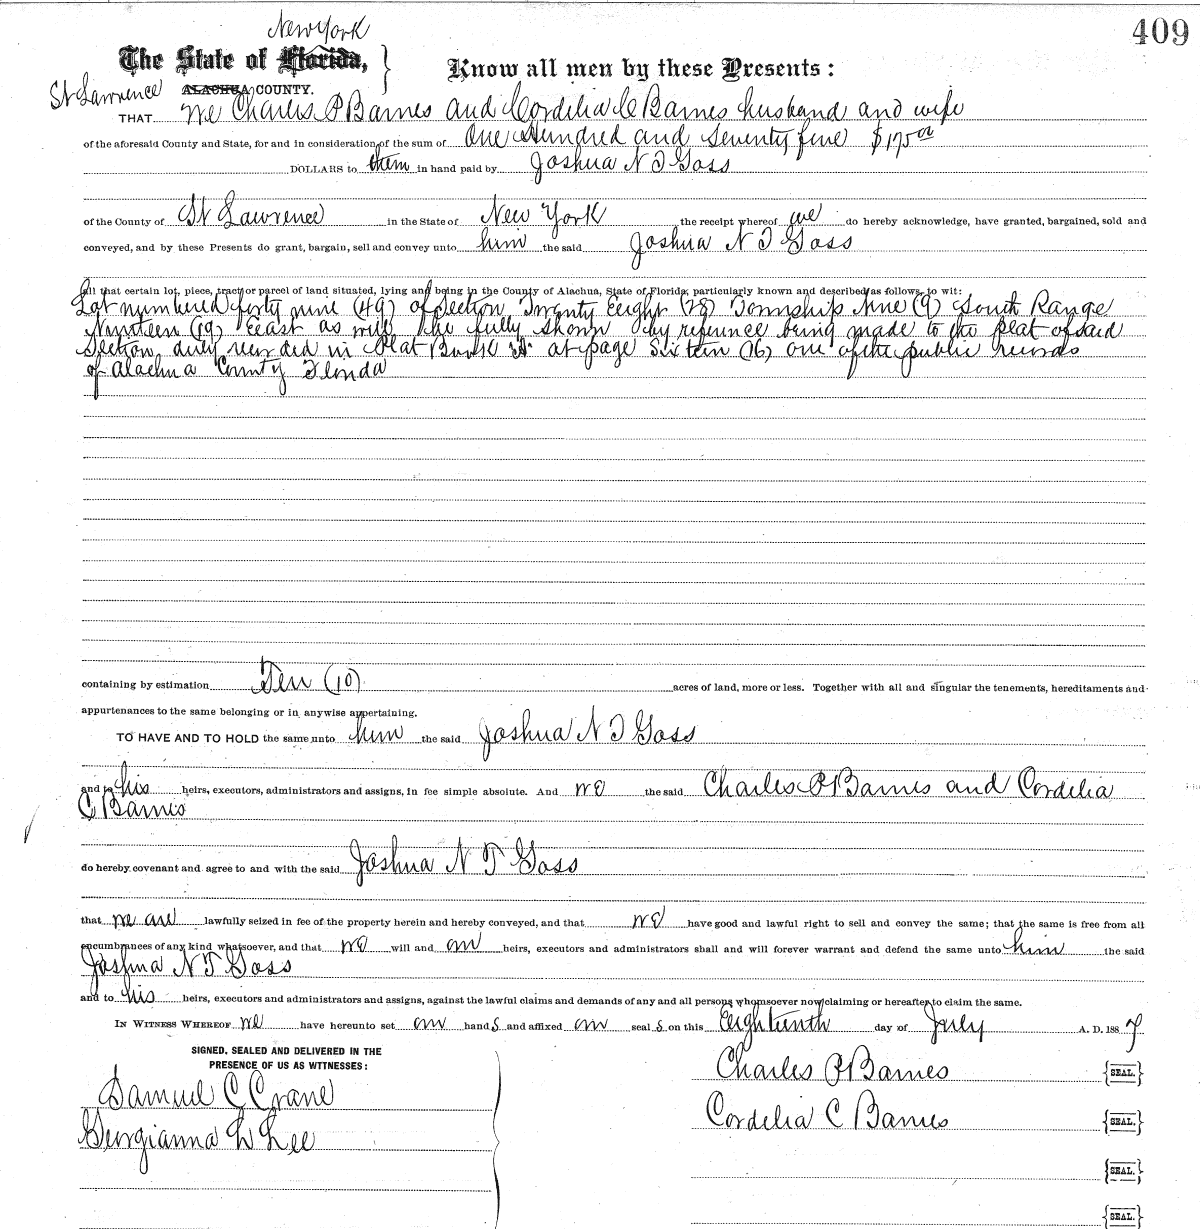 409
New York
The State of Florida,
St Lawrence ALACHUA COUNTY.
Know all men by these Presents:
THAT We Charles P Barnes and Cordelia C Barnes husband and wife
of the aforesaid County and State, for and in consideration of the sum of One Hundred and Seventy five $175.00
DOLLARS to them in hand paid by Joshua N T Goss
of the County of St Lawrence in the State of New York the receipt whereof we do hereby acknowledge, have granted, bargained, sold and
conveyed, and by these Presents do grant, bargain, sell and convey unto him the said Joshua N T Goss
all that certain lot, piece, tract or parcel of land situated, lying and being in the County of Alachua, State of Florida, particularly known and described as follows, to wit:
Lot numbered forty nine (49) of Section Twenty Eeight (28) Township Nine (9) South Range
Nineteen (19) Eeast as will be fully shown by reference being made to the plat of said
Section duly recorded in Plat Book "A" at page Sixteen (16) one of the public records
of Alachua County Florida
containing by estimation Ten (10) acres of land, more or less. Together with all and singular the tenements, hereditaments and
appurtenances to the same belonging or in anywise appertaining.
TO HAVE AND TO HOLD the same unto him the said Joshua N T Goss
and to his heirs, executors, administrators and assigns, in fee simple absolute. And we the said Charles P Barnes and Cordelia
C Barnes
do hereby covenant and agree to and with the said Joshua N T Goss
that we are lawfully seized in fee of the property herein and hereby conveyed, and that we have good and lawful right to sell and convey the same; that the same is free from all
encumbrances of any kind whatsoever, and that we will and our heirs, executors and administrators shall and will forever warrant and defend the same unto him the said
Joshua N T Goss
and to his heirs, executors and administrators and assigns, against the lawful claims and demands of any and all persons whomsoever now claiming or hereafter to claim the same.
IN WITNESS WHEREOF we have hereunto set our hands and affixed our seals on this Eighteenth day of July A. D. 1887
SIGNED, SEALED AND DELIVERED IN THE
PRESENCE OF US AS WITNESSES:
Samuel C Crane
Georgianna W Lee
Charles P Barnes {SEAL.}
Cordelia C Barnes {SEAL.}
{SEAL.}
{SEAL.}